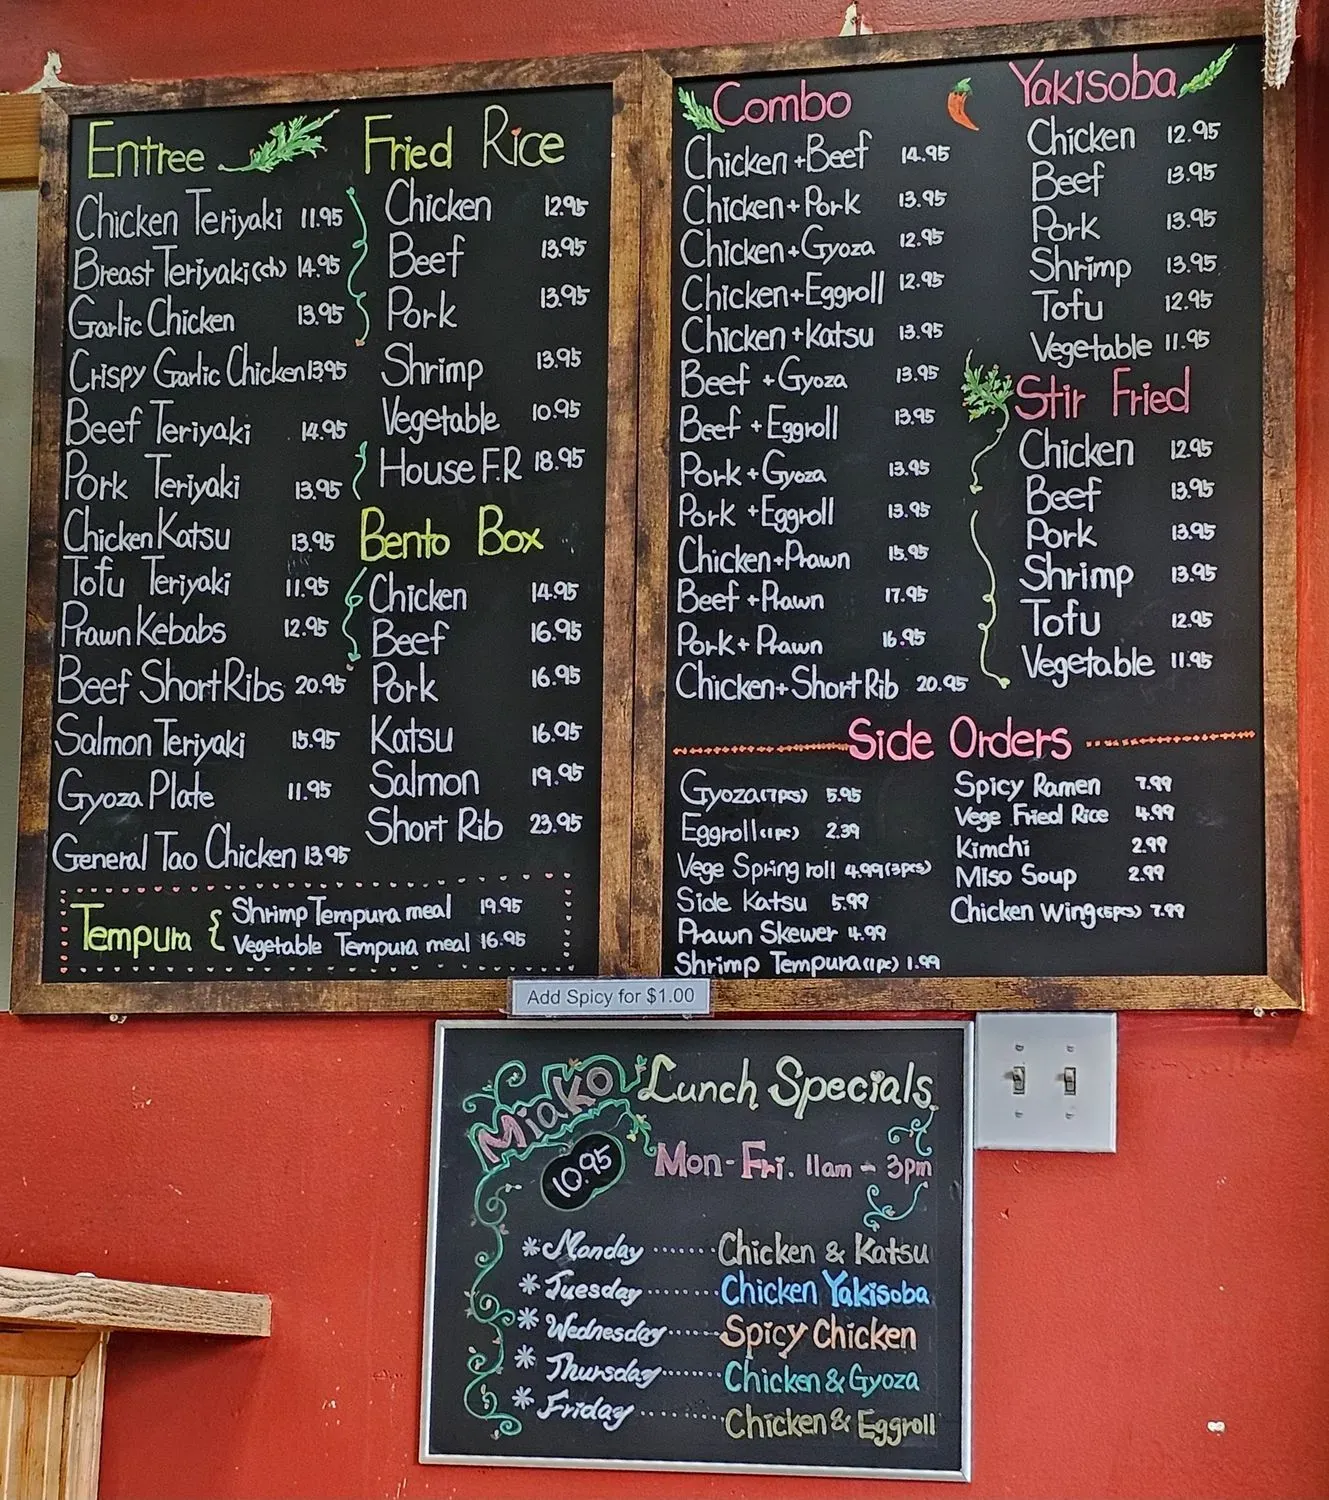 Entree
Chicken Teriyaki 11.95
Breast Teriyaki (ch) 14.95
Garlic Chicken 13.95
Crispy Garlic Chicken 13.95
Beef Teriyaki 14.95
Pork Teriyaki 13.95
Chicken Katsu 13.95
Tofu Teriyaki 11.95
Prawn Kebabs 12.95
Beef Short Ribs 20.95
Salmon Teriyaki 15.95
Gyoza Plate 11.95
General Tao Chicken 13.95
Fried Rice
Chicken 12.95
Beef 13.95
Pork 13.95
Shrimp 13.95
Vegetable 10.95
House F.R 18.95
Bento Box
Chicken 14.95
Beef 16.95
Pork 16.95
Katsu 16.95
Salmon 19.95
Short Rib 23.95
Tempura { Shrimp Tempura meal 19.95
Vegetable Tempura meal 16.95
Combo
Chicken + Beef 14.95
Chicken + Pork 13.95
Chicken + Gyoza 12.95
Chicken + Eggroll 12.95
Chicken + Katsu 13.95
Beef + Gyoza 13.95
Beef + Eggroll 13.95
Pork + Gyoza 13.95
Pork + Eggroll 13.95
Chicken + Prawn 15.95
Beef + Prawn 17.95
Pork + Prawn 16.95
Chicken + Short Rib 20.95
Yakisoba
Chicken 12.95
Beef 13.95
Pork 13.95
Shrimp 13.95
Tofu 12.95
Vegetable 11.95
Stir Fried
Chicken 12.95
Beef 13.95
Pork 13.95
Shrimp 13.95
Tofu 12.95
Vegetable 11.95
Side Orders
Gyoza (7pcs) 5.95
Eggroll (1pc) 2.39
Vege Spring roll 4.99 (3pcs)
Side Katsu 5.99
Prawn Skewer 4.99
Shrimp Tempura (1pc) 1.99
Spicy Ramen 7.99
Vege Fried Rice 4.99
Kimchi 2.99
Miso Soup 2.99
Chicken Wing (5pcs) 7.99
Add Spicy for $1.00
Miako Lunch Specials
10.95
Mon - Fri. 11am - 3pm
* Monday ....... Chicken & Katsu
* Tuesday ....... Chicken Yakisoba
* Wednesday ....... Spicy Chicken
* Thursday ....... Chicken & Gyoza
* Friday ....... Chicken & Eggroll